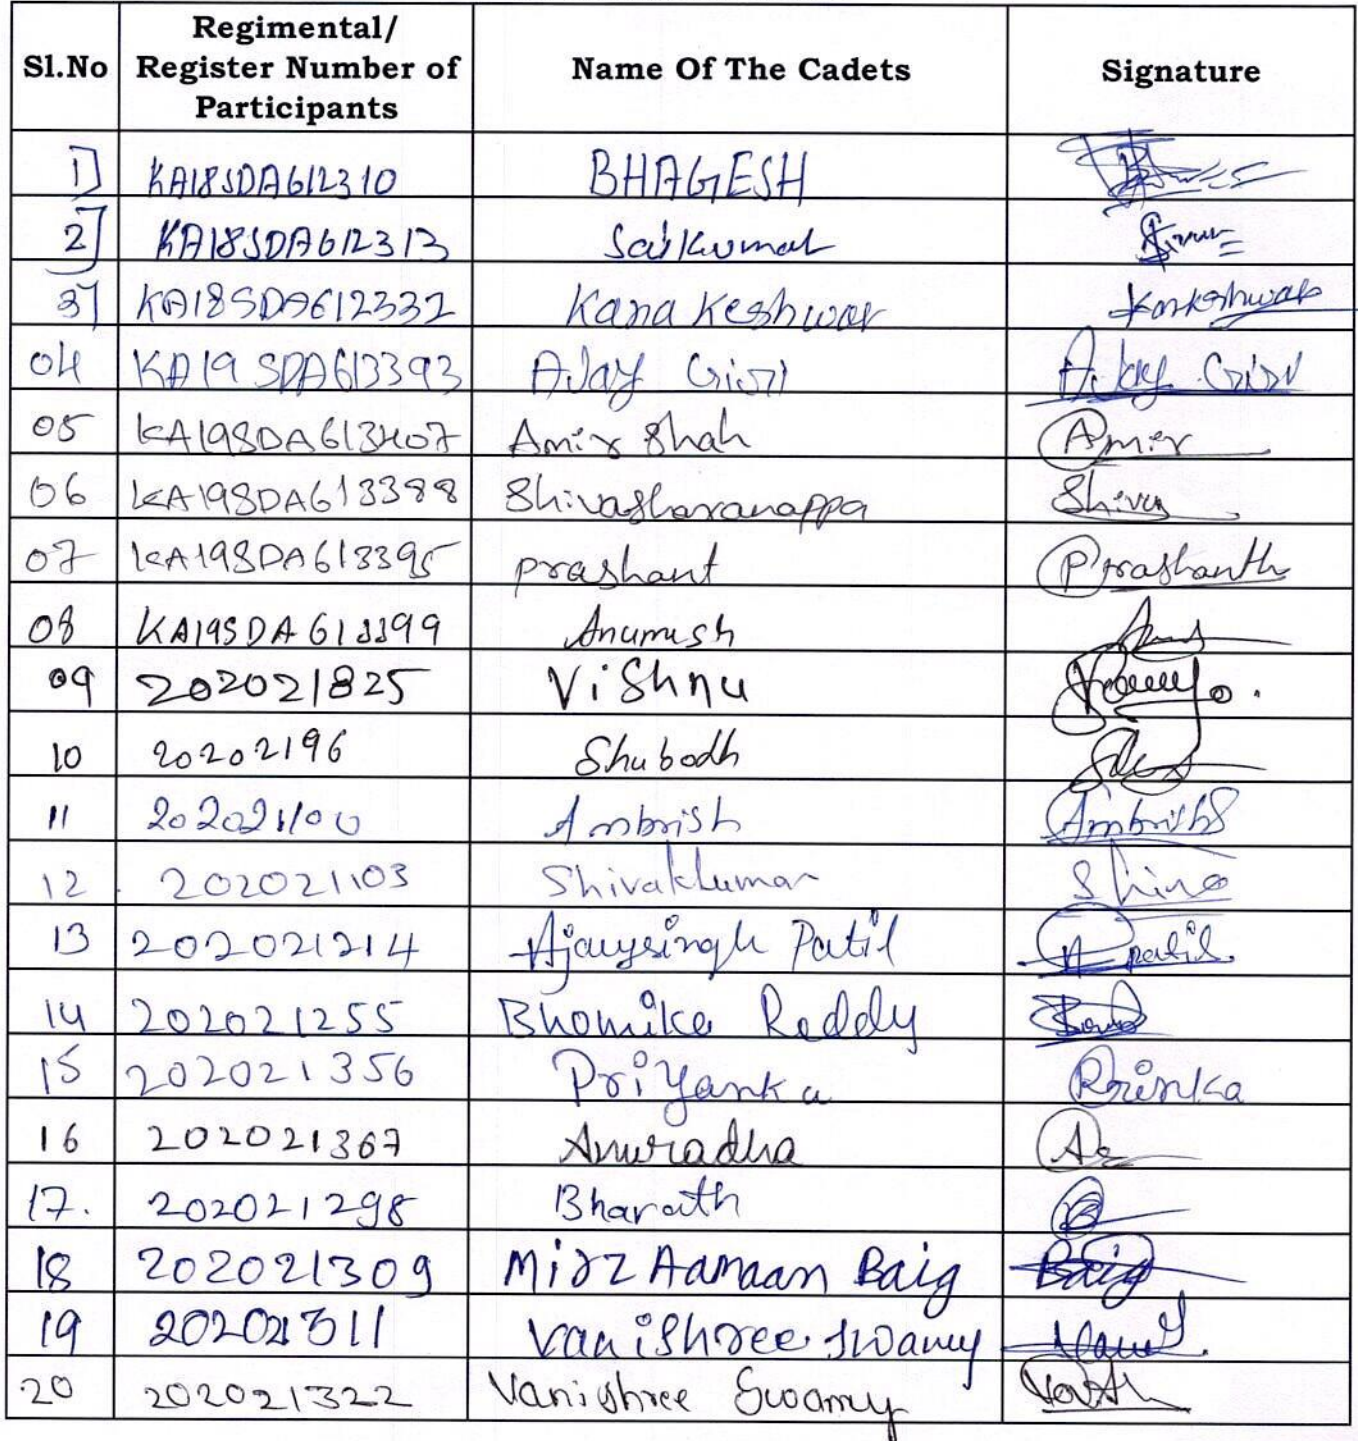 Sl.No Regimental/ Register Number of Participants Name Of The Cadets Signature
1] KA18SDA612310 BHAGESH
2] KA18SDA612313 Saikumar
3] KA18SDA612332 Kanakeshwar
04 KA19SDA613393 AJay Giri AJay Giri
05 KA19SDA613407 Amir Shah Amir
06 KA19SDA613388 Shivasharanappa Shiva
07 KA19SDA613395 prashant Prashanth
08 KA19SDA613399 Anumesh
09 202021825 ViShnu
10 20202196 Shubodh
11 202021100 Ambrish Ambrish
12 202021103 Shivakumar Shiva
13 202021214 Ajaysingh Patil A patil
14 202021255 Bhomika Reddy
15 202021356 PriYanka Prinka
16 202021367 Anuradha
17. 202021298 Bharath
18 202021309 Mirz Aamaan Baig Baig
19 202021311 Vanishree Swamy
20 202021322 Vanishree Swamy